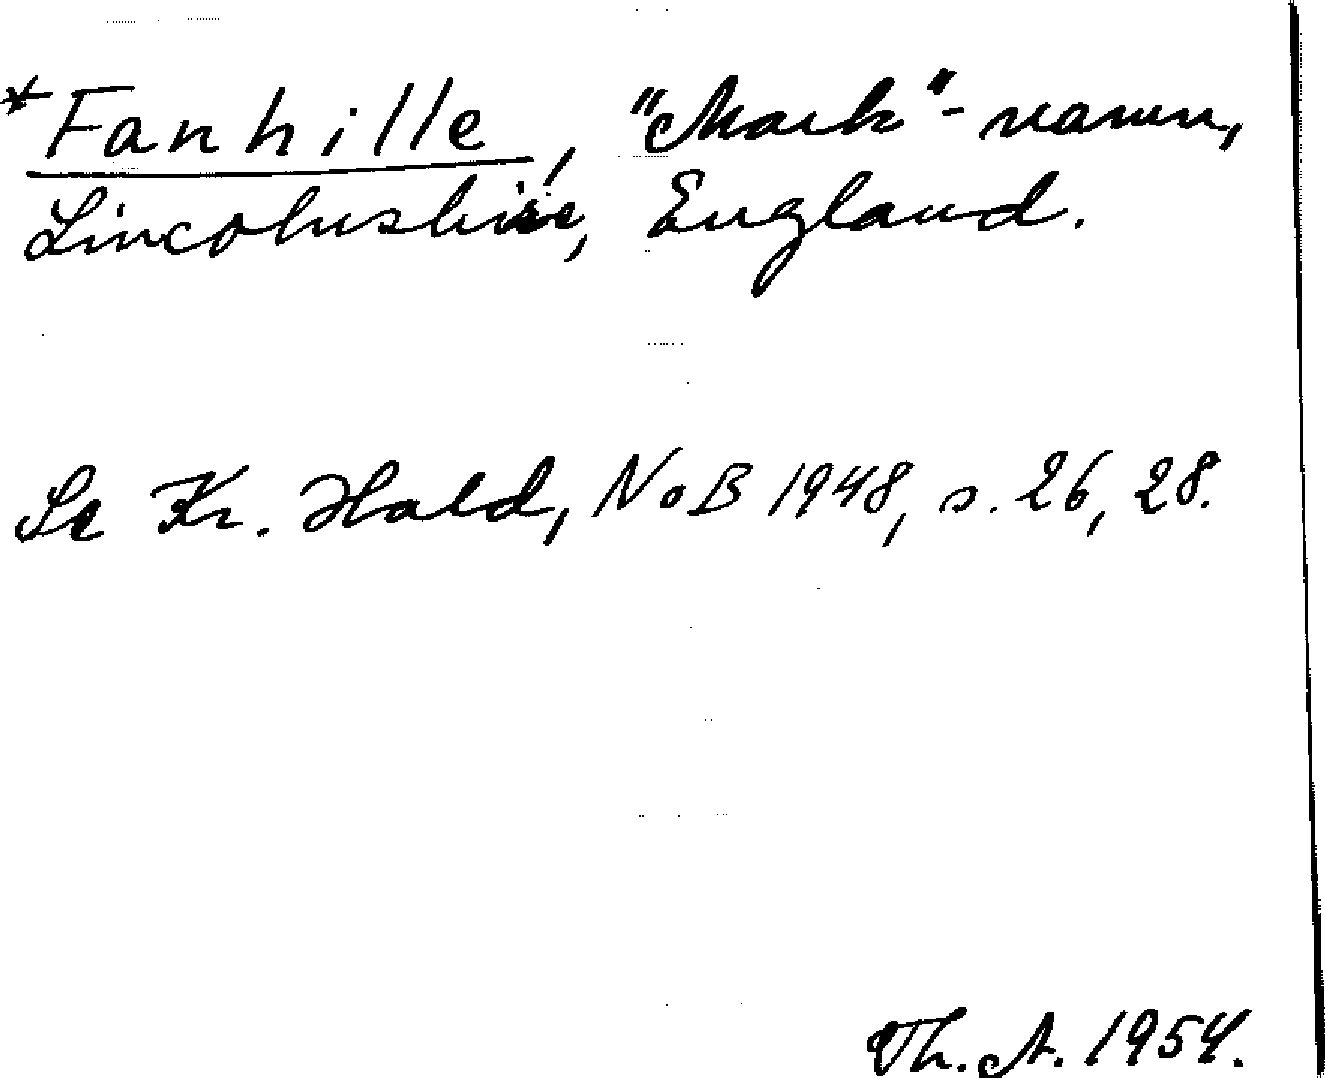 *Fanhille, "Mark"-namn,
Lincolnshire, England.
Se Kr. Hald, NoB 1948, s. 26, 28.
Th. A. 1954.